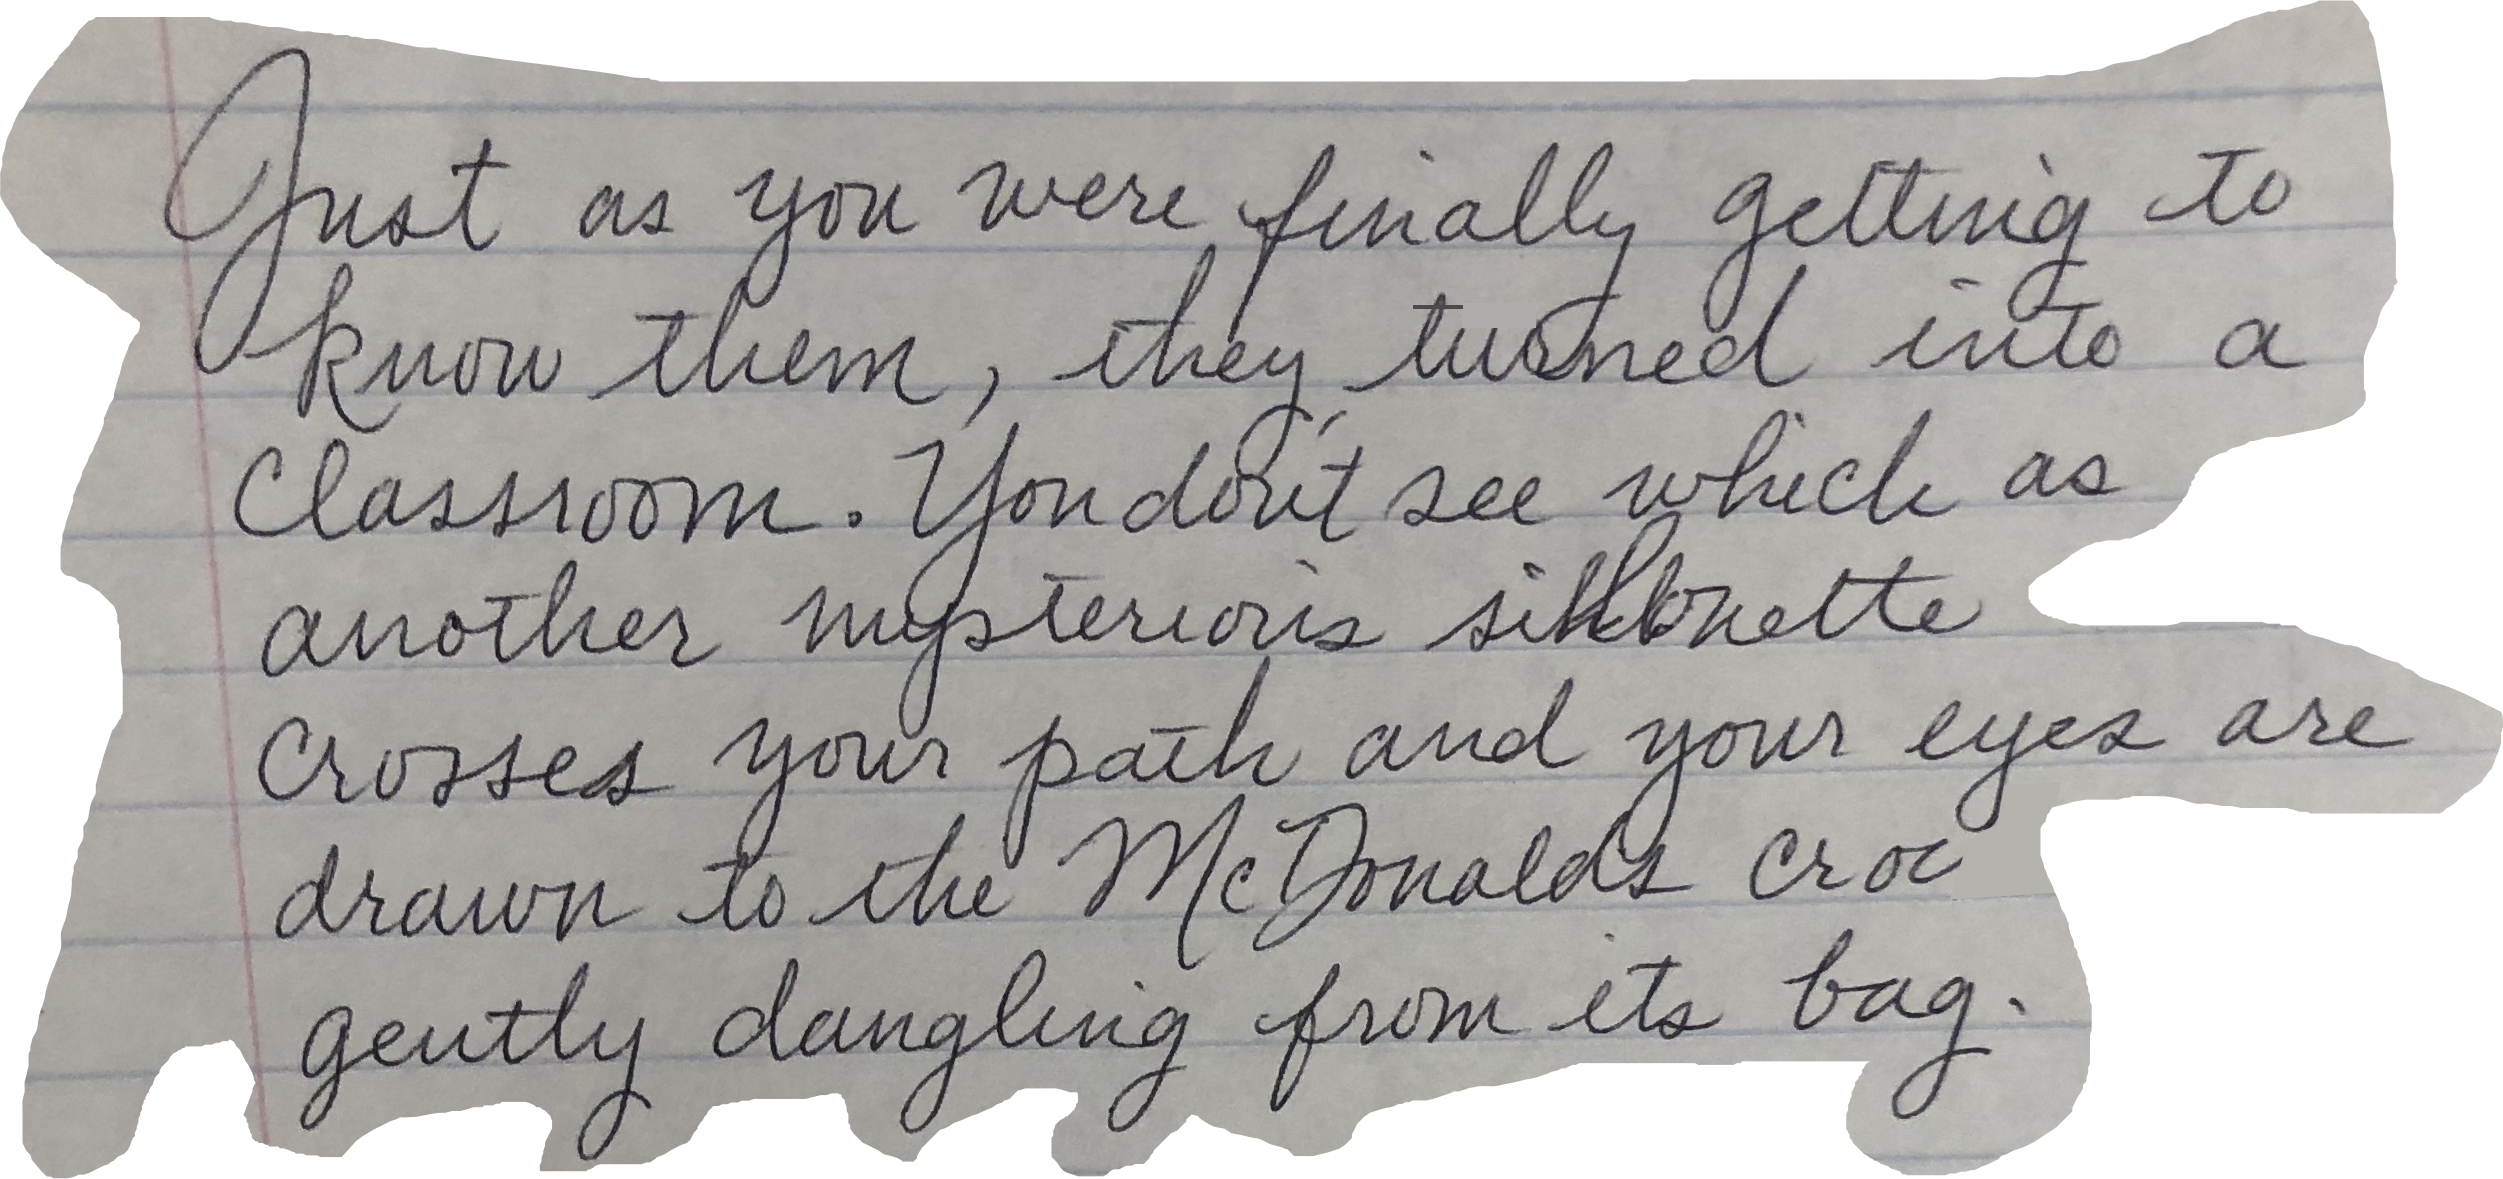 Just as you were finally getting to
know them, they turned into a
classroom. You don't see which as
another mysterious silhouette
crosses your path and your eyes are
drawn to the McDonald's croc
gently dangling from its bag.